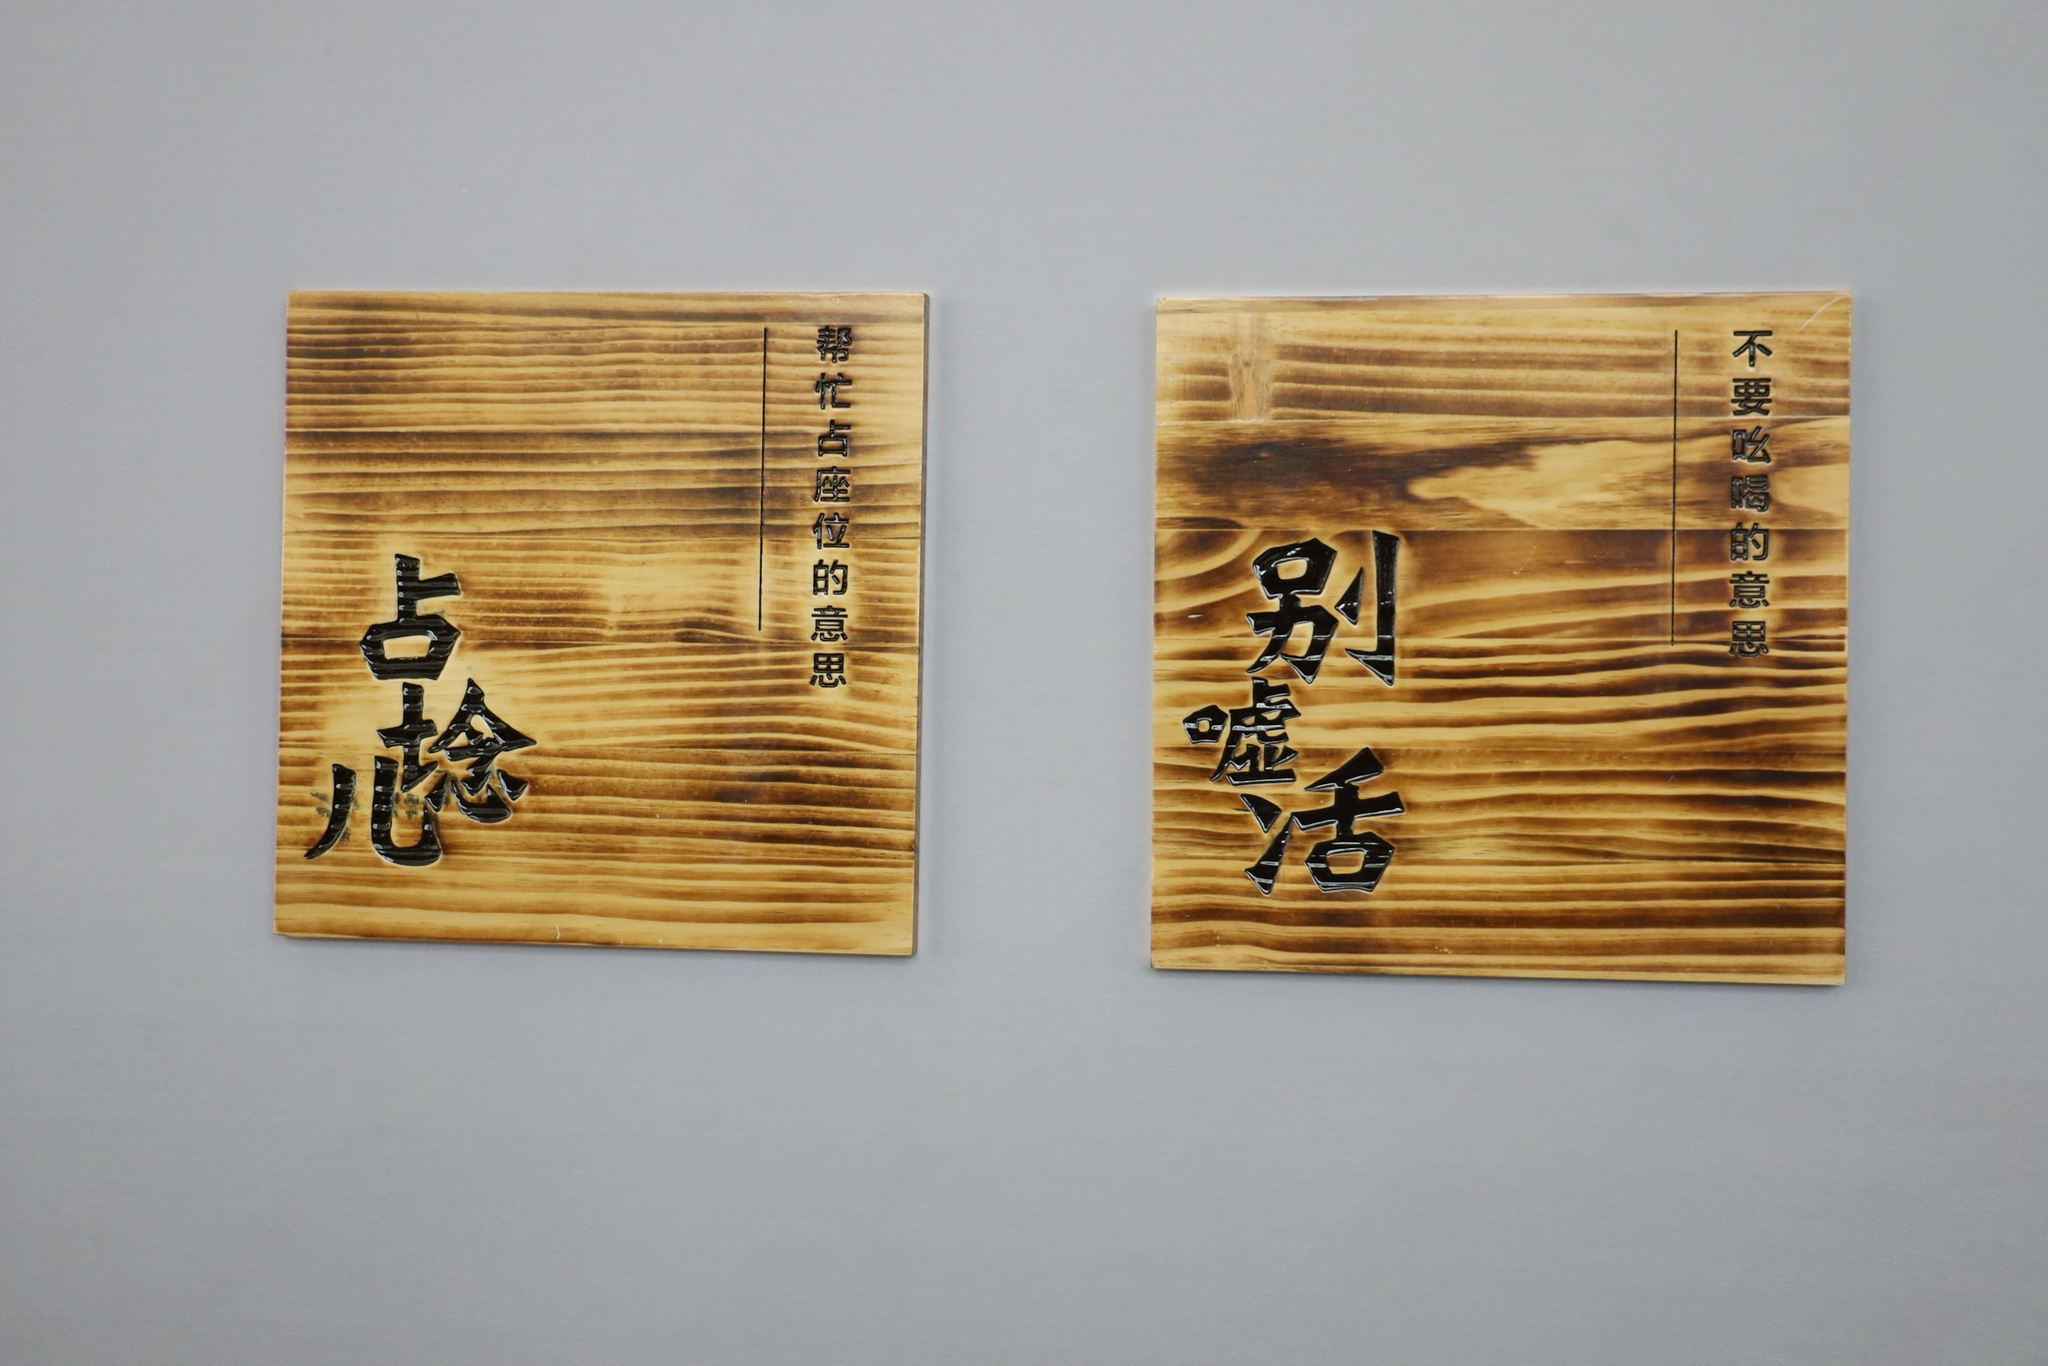 帮忙占座位的意思
占埝儿
不要吆喝的意思
别嘘活